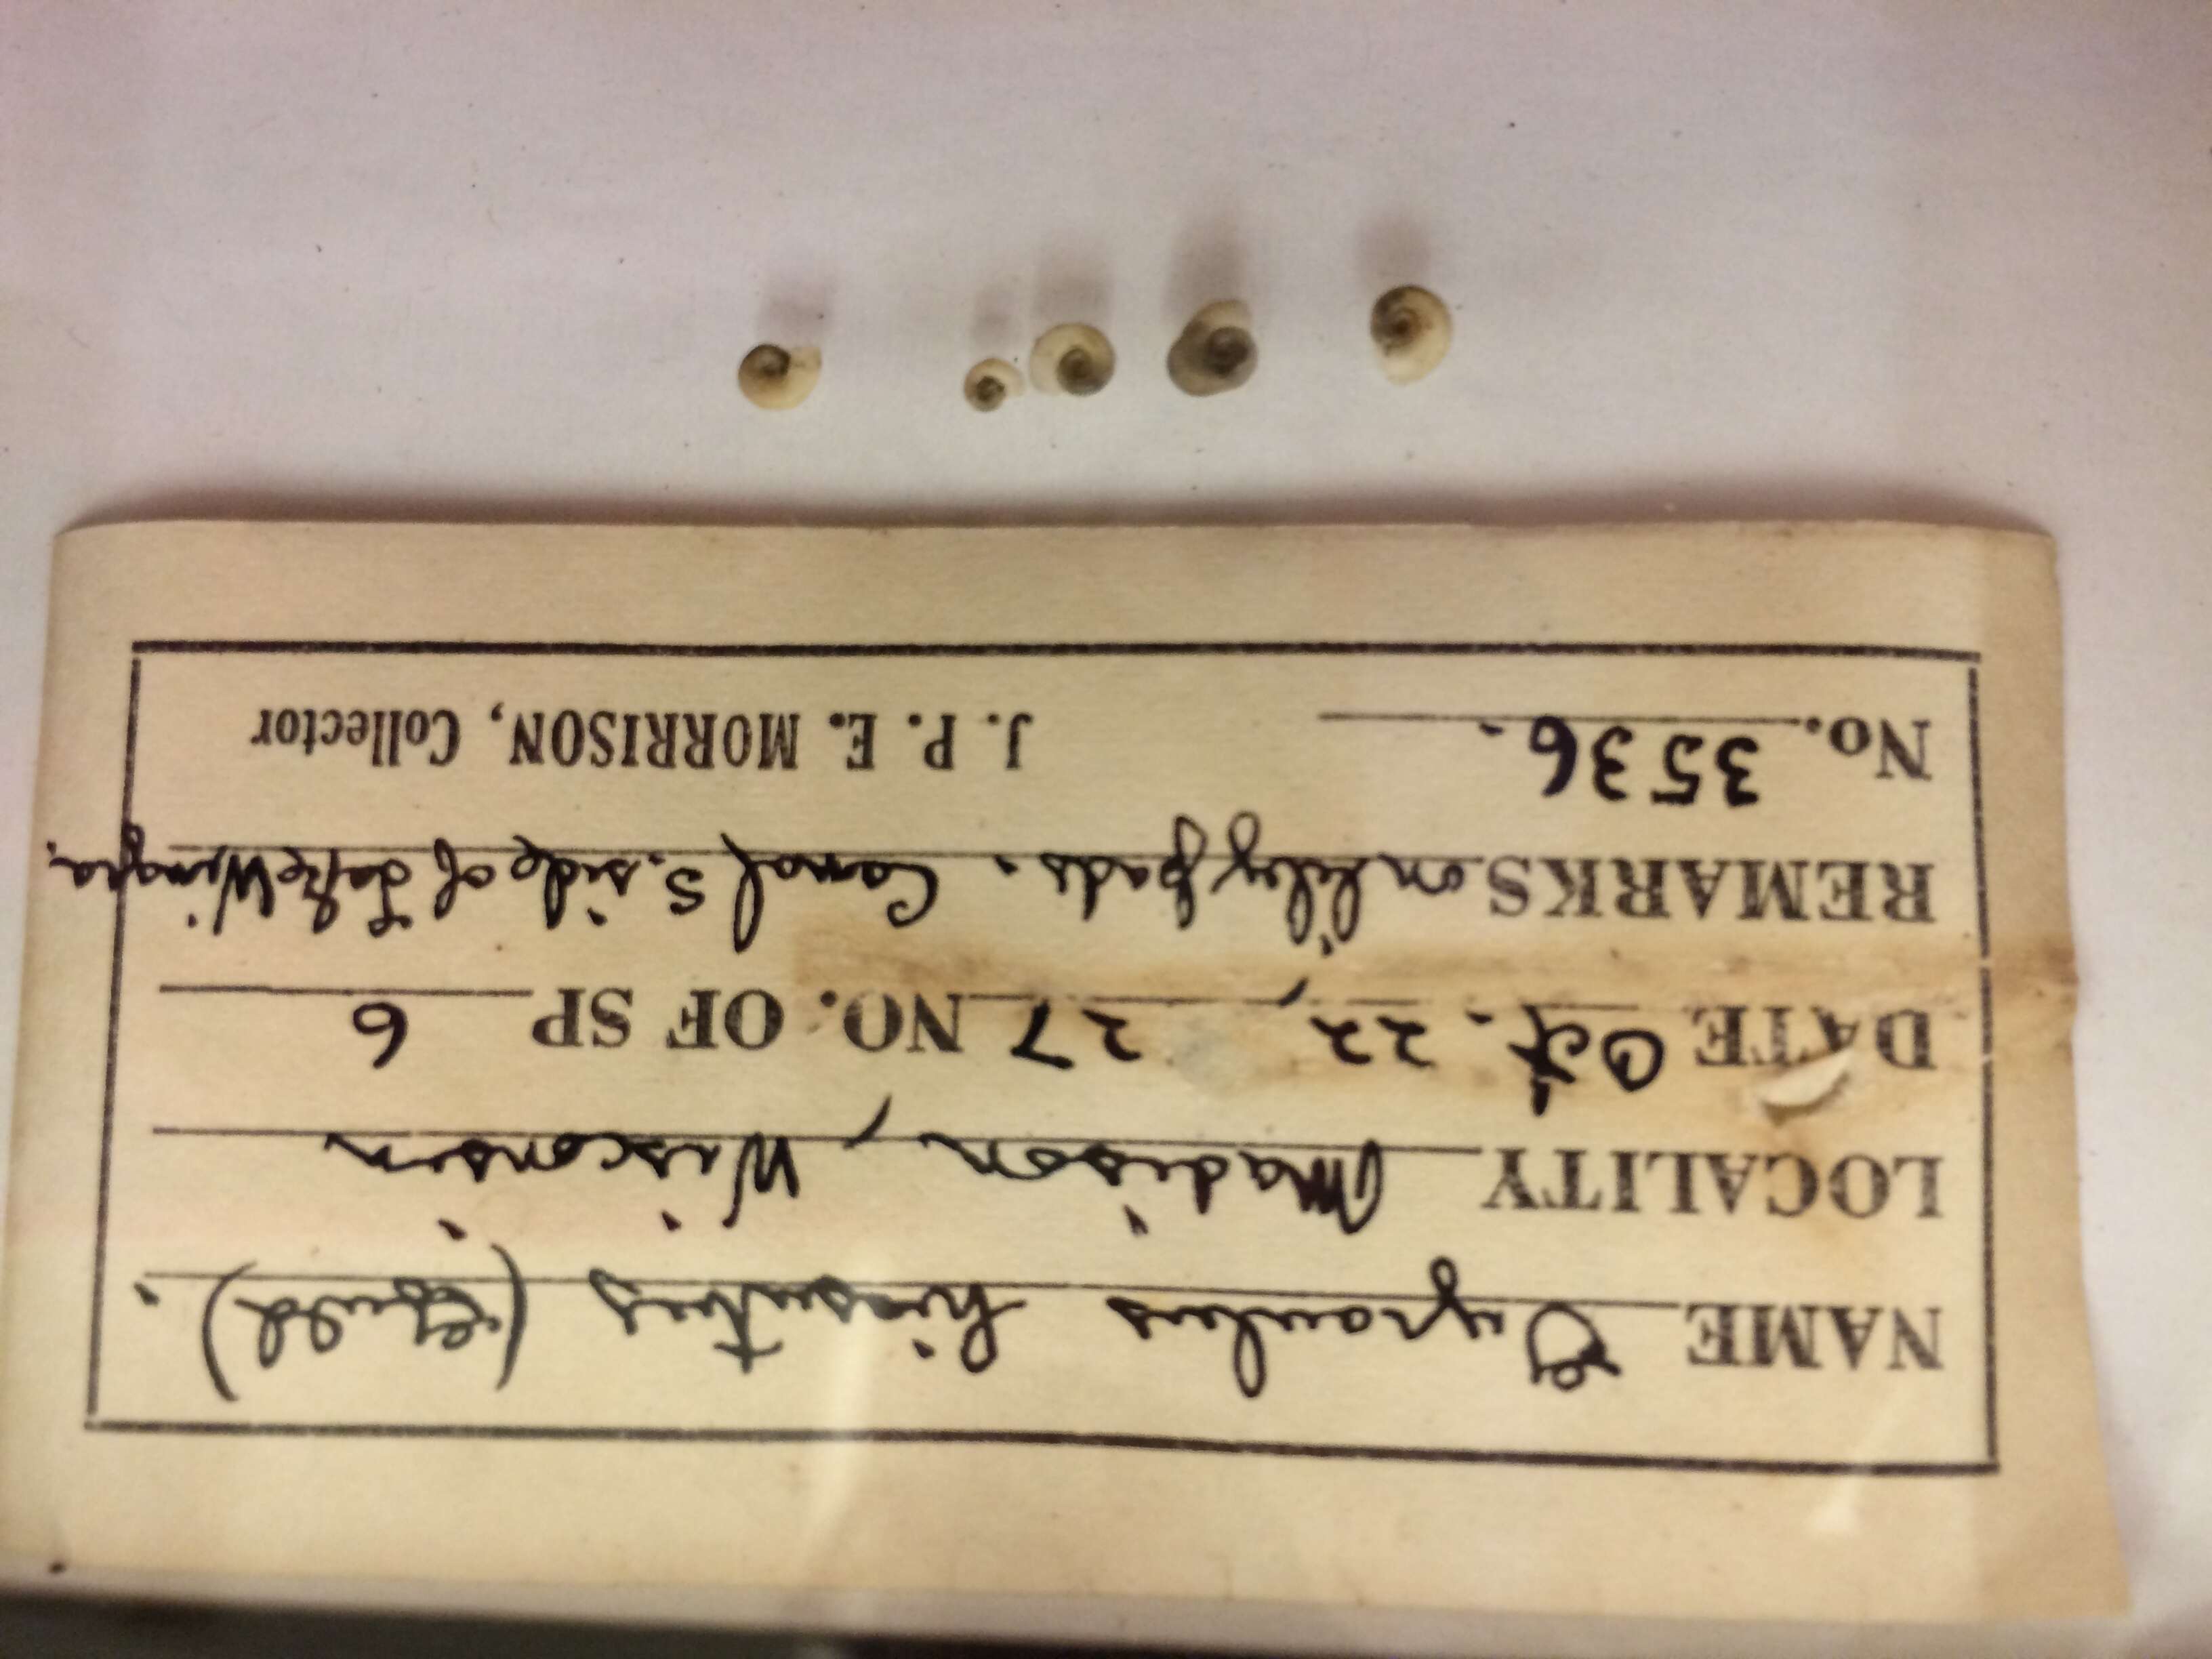 NAME Gyraulus hirsutus (Gould).
LOCALITY Madison, Wisconsin
DATE Oct. 22, 27 NO. OF SP 6
REMARKS on lily pads. Canal S. side of Lake Wingra.
No. 3536. J. P. E. MORRISON, Collector